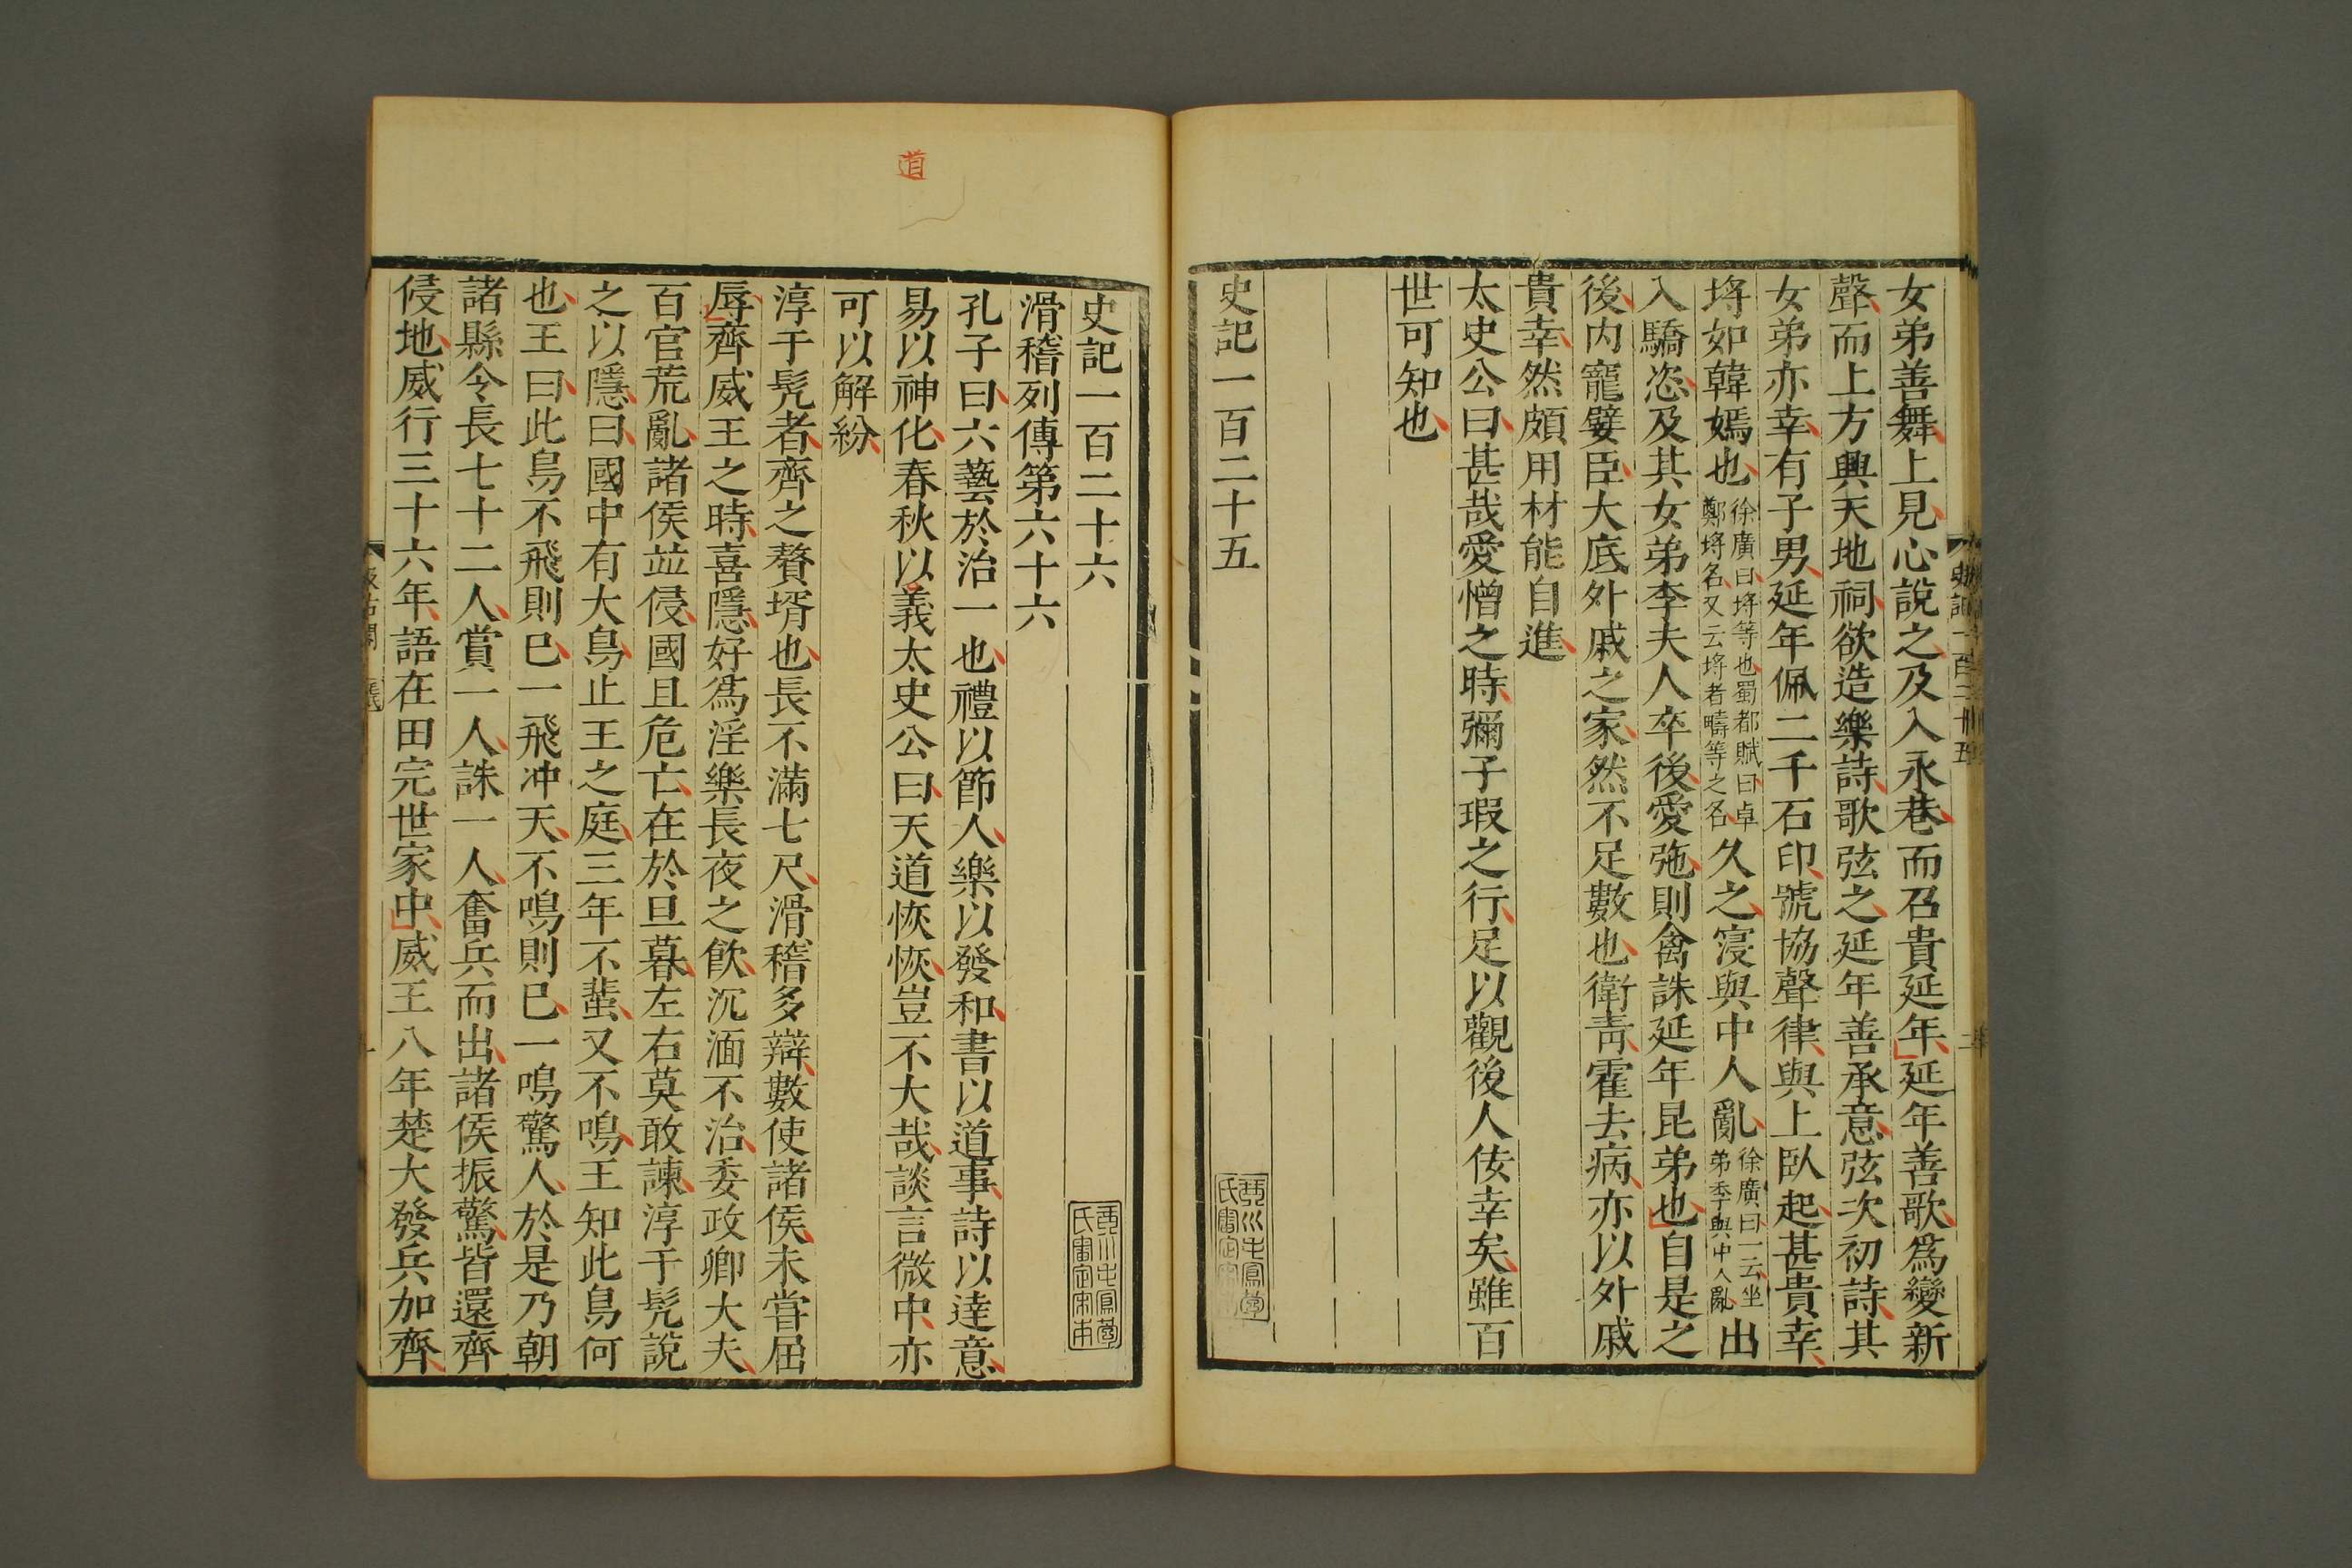 女弟善舞上見心說之及入永巷而召貴延年延年善歌爲變新
聲而上方興天地祠欲造樂詩歌弦之延年善承意弦次初詩其
女弟亦幸有子男延年佩二千石印號協聲律與上臥起甚貴幸
埒如韓嫣也徐廣曰埒等也蜀都賦曰卓鄭埒名又云埒者疇等之名久之寖與中人亂徐廣曰一云坐弟季與中人亂出
入驕恣及其女弟李夫人卒後愛弛則禽誅延年昆弟也自是之
後内寵嬖臣大底外戚之家然不足數也衛青霍去病亦以外戚
貴幸然頗用材能自進
太史公曰甚哉愛憎之時彌子瑕之行足以觀後人佞幸矣雖百
世可知也
史記一百二十五
史記一百二十六
滑稽列傳第六十六
孔子曰六藝於治一也禮以節人樂以發和書以道事詩以達意
易以神化春秋以義太史公曰天道恢恢豈不大哉談言微中亦
可以解紛
道
淳于髡者齊之贅壻也長不滿七尺滑稽多辯數使諸侯未嘗屈
辱齊威王之時喜隱好爲淫樂長夜之飲沉湎不治委政卿大夫
百官荒亂諸侯竝侵國且危亡在於旦暮左右莫敢諫淳于髡說
之以隱曰國中有大鳥止王之庭三年不蜚又不鳴王知此鳥何
也王曰此鳥不飛則已一飛沖天不鳴則已一鳴驚人於是乃朝
諸縣令長七十二人賞一人誅一人奮兵而出諸侯振驚皆還齊
侵地威行三十六年語在田完世家中威王八年楚大發兵加齊